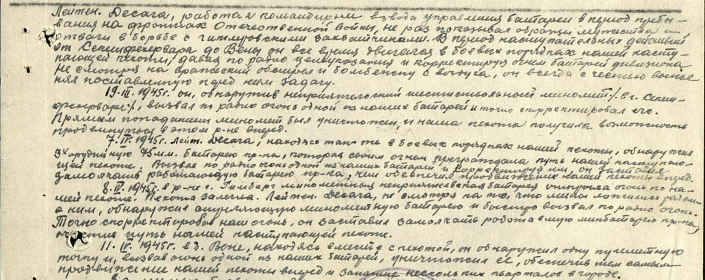 Лейтен. Десага, работая командиром взвода управления батареи в период пребы-
вания на фронтах Отечественной войны, не раз показывал образцы мужества и
отваги в борьбе с гитлеровскими захватчиками. В период наступательных действий
от Секешфехервара до Вены он все время двигался в боевых порядках нашей насту-
пающей пехоты, давая по радио целеуказания и корректируя огнем батарей дивизиона.
Не смотря на вражеский обстрел и бомбежку с воздуха, он всегда с честью выпол-
нял поставленную перед ним задачу.
19.III.1945г. он, обнаружив неприятельский шестиствольный миномет /в г. Секеш-
фехервар/, вызвал по радио огонь одной из наших батарей и точно скорректировал его.
Прямым попаданием миномет был уничтожен, и наша пехота получила возможность
продвинуться в этом р-не вперед.
7.IV.1945г. лейт. Десага, находясь также в боевых порядках нашей пехоты, обнаружил
3х орудийную 75 м.м. батарею пр-ка, которая своим огнем преграждала путь нашей наступаю-
щей пехоте. Вызвав по радио огонь одной из наших батарей и корректируя им, он заставил
замолчать работающую батарею пр-ка, чем обеспечил продвижение нашей пехоты вперед.
8.IV.1945г. в р-не г. минометная неприятельская батарея открыла огонь по на-
шей пехоте. Пехота залегла. Лейтен. Десага, не смотря на то, что мины ложились рядом
с ним, обнаружил стреляющую минометную батарею и быстро вызвал по радио огонь.
Точно скорректировав наш огонь, он заставил замолчать работавшую минбатарею пр-ка,
путь нашей наступающей пехоте.
11.IV.1945г. в г. Вене, находясь вместе с пехотой, он обнаружил одну пулеметную
точку и, вызвав огонь одной из наших батарей, уничтожил её, обеспечив тем самым
продвижение нашей пехоты вперед и занятие нескольких кварталов в городе.